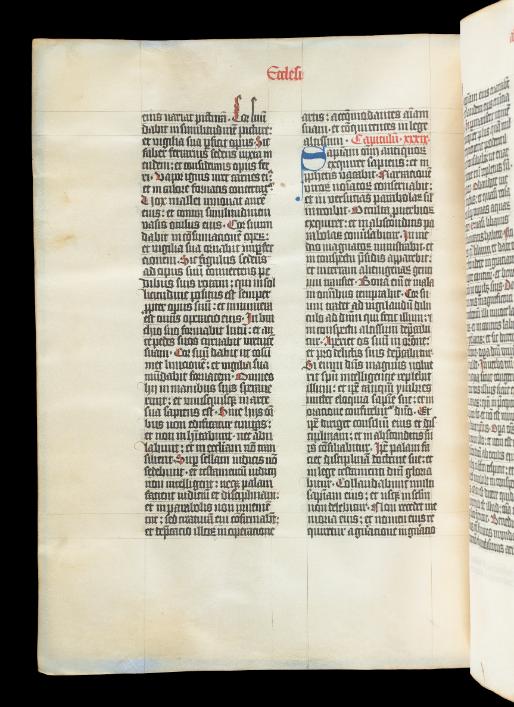 Ecclesi
eius variat picturā. Cor suū
dabit in similitudinē picture:
et vigilia sua pficiet opus. Sic
faber ferrarius sedens iuxta in
cudem: et considerans opus fer
ri. Vapor ignis uret carnes ei⁹:
et in calore fornacis concertat᷑.
Vox mallei innouat aurē
eius: et contra similitudinem
vasis oculus eius. Cor suum
dabit in cōsummationē operū:
et vigilia sua ornabit imperfec
tionem. Sic figulus sedens
ad opus suū conuertens pe
dibus suis rotam: qui in sol
licitudine positus est semper
ppter opus suū: et innumera
est omnis operatio eius. In bra
chio suo formabit lutū: et an
te pedes suos curuabit virtutē
suam. Cor suū dabit ut consū
met linitionē: et vigilia sua
mūdabit fornacem. Omnes
hij in manibus suis speraue
runt: et unusquisq; in arte
sua sapiens est. Sine hijs oī
bus non edificatur ciuitas:
et non inhabitabunt nec ābu
labunt: et in eccliam nō tran
silient. Sup sellam iudicis nō
sedebunt: et testamentū iudicij
non intelligent: neq; palam
facient iudiciū et disciplinam:
et in parabolis non inuenient᷑:
sed creaturā eui confirmabūt:
et deprecatio illoꝝ in operatione
artis: accōmodantes aīam
suam: et conquirentes in lege
altissimi. Capitulū xxxix.
Sapiam oīm antiquoꝝ
exquiret sapiens: et in
pphetis vacabit. Narrationē
viroꝝ nominatoꝝ conseruabit:
et in versucias parabolaꝝ sīl
introibit. Occulta puerbioꝝ
exquiret: et in absconditis pa
rabolaꝝ conuersabit᷑. In me
dio magnatoꝝ ministrabit: et
in conspectu psidis apparebit:
et in terram alienigenaꝝ genti
um transiet. Bona eīm et mala
in omībus temptabit. Cor su
um tradet ad vigilandū dilu
culo ad dn̄m qui fecit illum: et
in conspectu altissimi depca
bit᷑. Aperiet os suū in oratōne:
et pro delictis suis deprecabit᷑.
Si enim dn̄s magnus volue
rit spū intelligentie replebit
illum: et ipse tanq̄ ymbres
mittet eloquia sapiētie sue: et in
oratione confitebit᷑ dn̄o. Et
ipe diriget consiliū eius et dis
ciplinam: et in absconditis su
is cōsiliabit᷑. Ipe palam fa
ciet disciplinā doctrine sue: et
in lege testamenti dn̄i gloria
bit᷑. Collaudabunt multi
sapiam eius: et usq; in sclm
non delebit᷑. Non recedet me
moria eius: et nomen eius re
quiretur a gnatione in gnatio